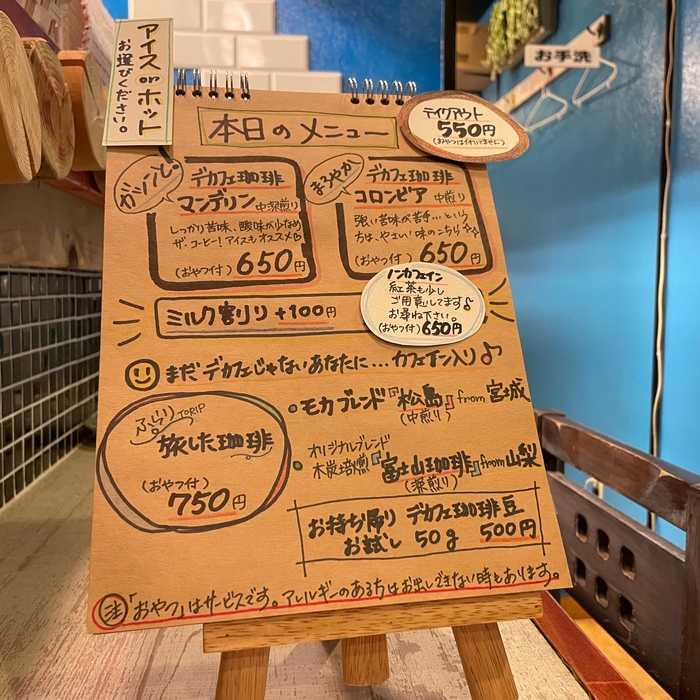 アイス or ホット
お選びください。
お手洗
本日のメニュー
テイクアウト
550円
(おやつは付いてません)
ガツンと。
デカフェ珈琲
マンデリン 中深煎り
しっかり苦味、酸味が少なめ
ザ・コーヒー!アイスもオススメ
(おやつ付) 650円
まろやか
デカフェ珈琲
コロンビア 中煎り
強い苦味が苦手…という
方は、やさしい味のこちら
(おやつ付) 650円
ノンカフェイン
紅茶も少し
ご用意してます♪
お尋ね下さい。
(おやつ付) 650円
ミルク割り +100円
まだデカフェじゃないあなたに…カフェイン入り♪
ふらり TORIP
旅した珈琲
(おやつ付)
750円
・モカブレンド『松島』from 宮城
(中煎り)
オリジナルブレンド
・木炭焙煎『富士山珈琲』from 山梨
(深煎り)
お持ち帰り デカフェ珈琲豆
お試し 50g 500円
注「おやつ」はサービスです。アレルギーのある方はお出しできない時もあります。